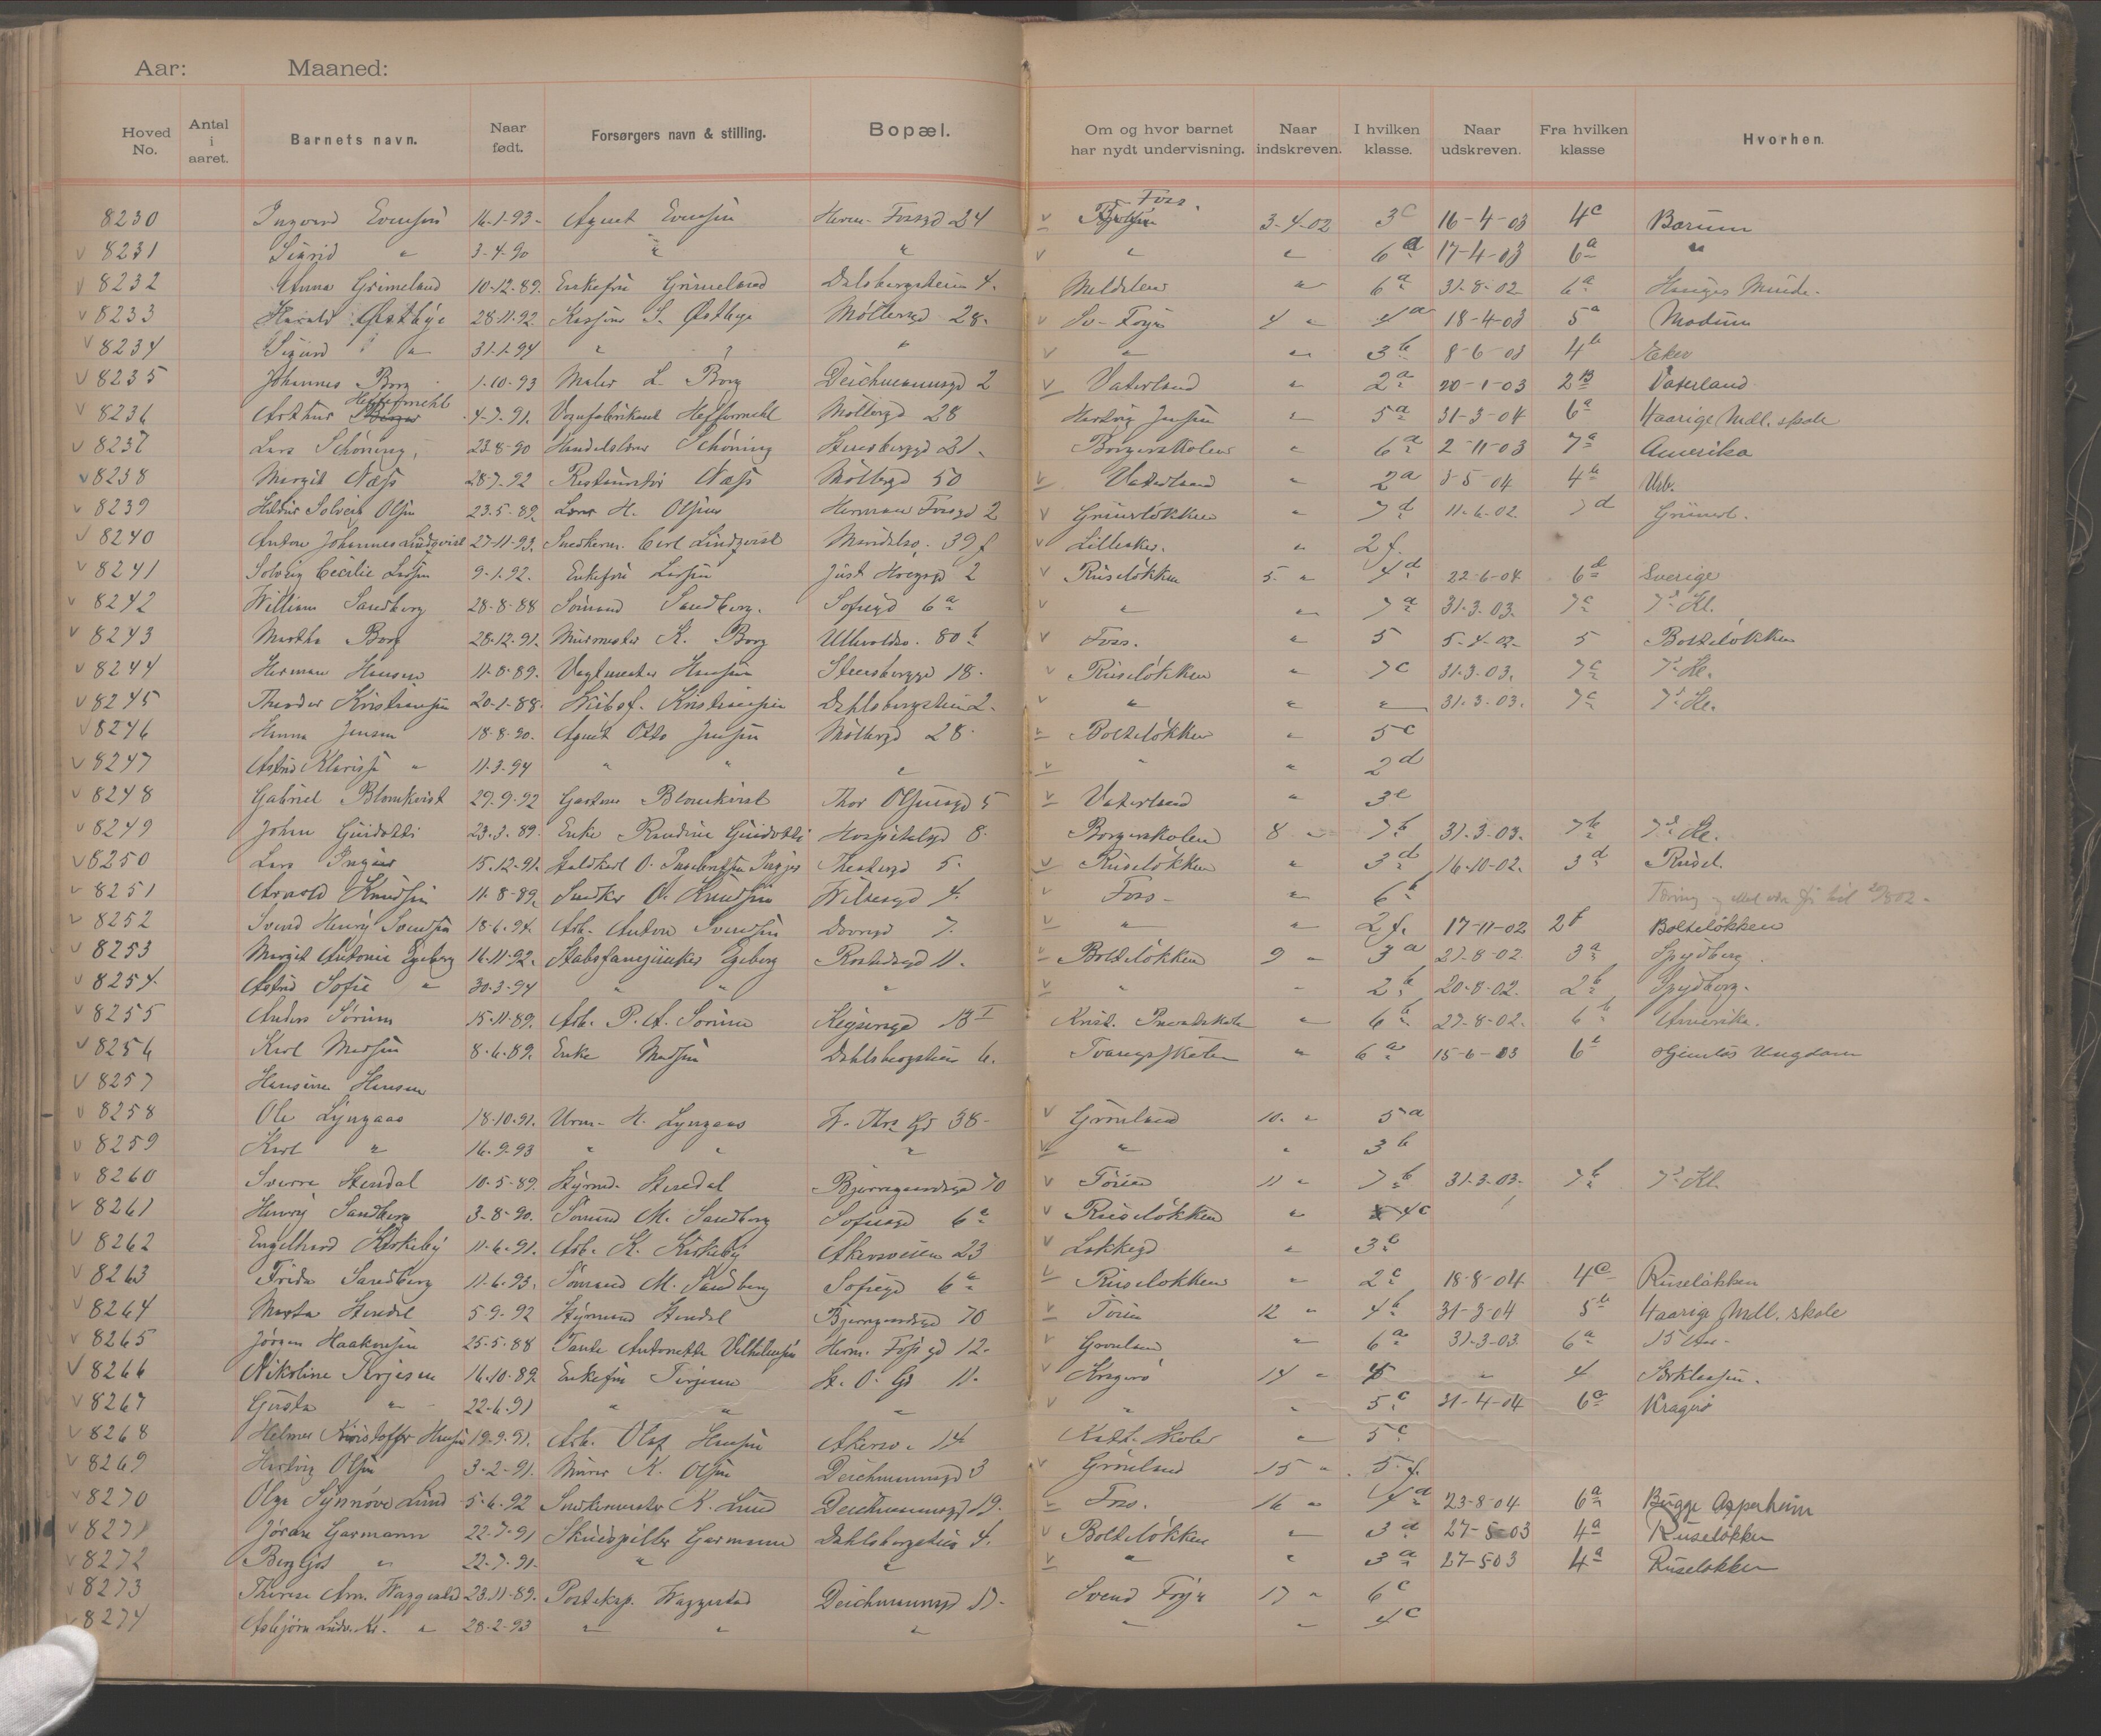 Aar: Maaned:
Hoved No. Antal i aaret. Barnets navn. Naar født. Forsørgers navn & stilling. Bopæl. Om og hvor barnet har nydt undervisning. Naar indskreven. I hvilken klasse. Naar udskreven. Fra hvilken klasse Hvorhen.
8230 Ingvard Evensen 16-1-93 Agent Evensen Herm. Fossgd 24 Foss. 3-4-02 3c 16-4-03 4c Bærum
8231 Sigrid " 3-4-90 " " " " 6a 17-4-03 6a "
8232 Anna Grimeland 10-12-89. Enkefru Grimeland Dahlsbergstien 4. " 6a 31-8-02 6a
8233 Harald Østbye 28-11-92 S. Østbye Møllergd 28. Sv. Foyn 4 " 4a 18-4-03 5a Modum
8234 Sigurd " 31-1-94 " " " " " 3b 8-6-03 4b Eker
8235 Johannes Borg 1-10-93 Maler L. Borg Deichmannsgd 2 Vaterland " 2a 20-1-03 2B Vaterland
8236 Arthur Heffermehl 4-7-91. Vognfabrikant Heffermehl Møllergd 28 Hartvig Jensen " 5a 31-3-04 6a 4aarige Mdl. skole
8237 Lars Schöning, 23-8-90 Schöning Stensberggd 21. Borgerskolen " 6a 2-11-03 7a Amerika
8238 Margit Næss 28-7-92 Næss Møllergd 50 Vaterland " 2a 3-5-04 4b
8239 Solveig Olsen 23-5-89. H. Olsen Herman Fossgd 2 Grünerløkken " 7d 11-6-02. 7d Grünerl.
8240 Anton Johannes Lindqvist 27-11-93. Snedkerm. Carl Lindqvist 39f Lilleaker. " 2f.
8241 Solveig Cecilie 9-1-92. Enkefru Just 2 Ruseløkken 5. " 4d 22-6-04 6d Sverige
8242 William Sandberg 28-8-88 Sømand Sandberg. Sofiegd 6a " " 7a 31-3-03. 7c 7d Kl.
8243 Martha Borg 28-12-91. Murmester K. Borg Ullevoldsv. 80b Foss. " 5 5-4-02 5 Bolteløkken
8244 Herman Hansen 11-8-89. Vagtmester Hansen Stensberggd 18. Ruseløkken " 7c 31-3-03. 7c 7d Kl.
8245 Theodor Kristiansen 20-1-88. Kristiansen Dahlsbergstien 2. " " " 31-3-03. 7c 7d Kl.
8246 Hanna Jensen 18-8-90. Agent Otto Jensen Møllergd 28 Bolteløkken " 5c
8247 Astrid Klarissa " 11-3-94 " " " " " 2d
8248 Gabriel Blomkvist 29-9-92 Gartner Blomkvist Thor Olsensgd 5 Vaterland " 3e
8249 Johan Guidotti 23-3-89. Enke Guidotti Hospitalsgd 8. Borgerskolen 8 " 7b 31-3-03. 7b 7d Kl.
8250 Lars 15-12-91. Staldkarl O. Theatergd 5. Ruseløkken " 3d 16-10-02. 3d Rusel.
8251 Arnold Knudsen 11-8-89. Snedker O. Knudsen Wilsesgd 4. Foss " 6b
8252 Svend Henry Svendsen 18-6-94. Arb. Anton Svendsen 7. " " 2f. 17-11-02 2f Bolteløkken
8253 Margit Antonie Egeberg 16-11-92. Stabsfanejunker Egeberg Rostedsgd 11. Bolteløkken 9 " 3a 27-8-02 3a Spydberg.
8254 Astrid Sofie " 30-3-94 " " " " " 2b 20-8-02. 2b Spydberg.
8255 Anders Sørum 15-11-89. Arb. P. A. Sørum Keysersgd 13 I Krist. " 6b 27-8-02. 6b Amerika.
8256 Karl Madsen 8-6-89. Enke Madsen Dahlsbergstien 6. Tvangsskolen " 6a 15-6-03 6b Hjemløs Ungdom
8257 Hansine Hansen
8258 Ole Lyngaas 18-10-91. Urm. H. Lyngaas 38 Grønland 10. " 5a
8259 Karl " 16-9-93 " " " " " 3b
8260 Sverre Stendal 10-5-89. Styrmd. Stendal Bjerregaardsgd 70 Tøien 11 " 7b 31-3-03. 7b 7d Kl.
8261 Henry Sandberg 3-8-90. Sømand M. Sandberg Sofiegd 6a Ruseløkken " 4c
8262 Engelhard Kirkeby 11-6-91. Arb. K. Kirkeby Akersveien 23 Lakkegd " 3b
8263 Frida Sandberg 11-6-93. Sømand M. Sandberg Sofiegd 6a Ruseløkken " 2c 18-8-04 4c Ruseløkken
8264 Marta Stendal 5-9-92 Styrmand Stendal Bjerregaardsgd 70 Tøien 12 " 4b 31-3-04 5b 4aarige Mdl. skole
8265 Jørgen Haakonsen 25-5-88 Tante Antonette Vilhelmsen Herm. Fossgd 12. Grønland " 6a 31-3-03 6a 15 Aar
8266 Nikoline Terjesen 16-10-89 Enkefru Terjesen St. O. Gd 11. Kragerø 14 " " 4
8267 Gusta " 22-6-91 " " " " " 5c 31-4-04 6a Kragerø
8268 Helmer Kristoffer Hansen 19-9-91. Arb. Olaf Hansen Akersv. 14 Kath. Skole " 5c
8269 Hartvig Olsen 3-2-91. Murer K. Olsen Deichmannsgd 3 Grønland 15 " 5.f.
8270 Olga Synnøve Lund 5-6-92 Snedkermester K. Lund Deichmannsgd 19. Foss. 16 " 4a 23-8-04 6a Bugge Asperheim
8271 Jørane Garmann 22-7-91 Skuespiller Garmann Dahlsbergstien 4. Bolteløkken " 3d 27-5-03 4a Ruseløkken
8272 Bergljot " 22-7-91- " " " " 3a 27-5 03 4a Ruseløkken
8273 Therese Am. Waggestad 23-11-89. Posteksp. Waggestad Deichmannsgd 17. Svend Foyn 17 " 6c
8274 Asbjørn Ludv. M. " 28-2-93 " " " " " 4c